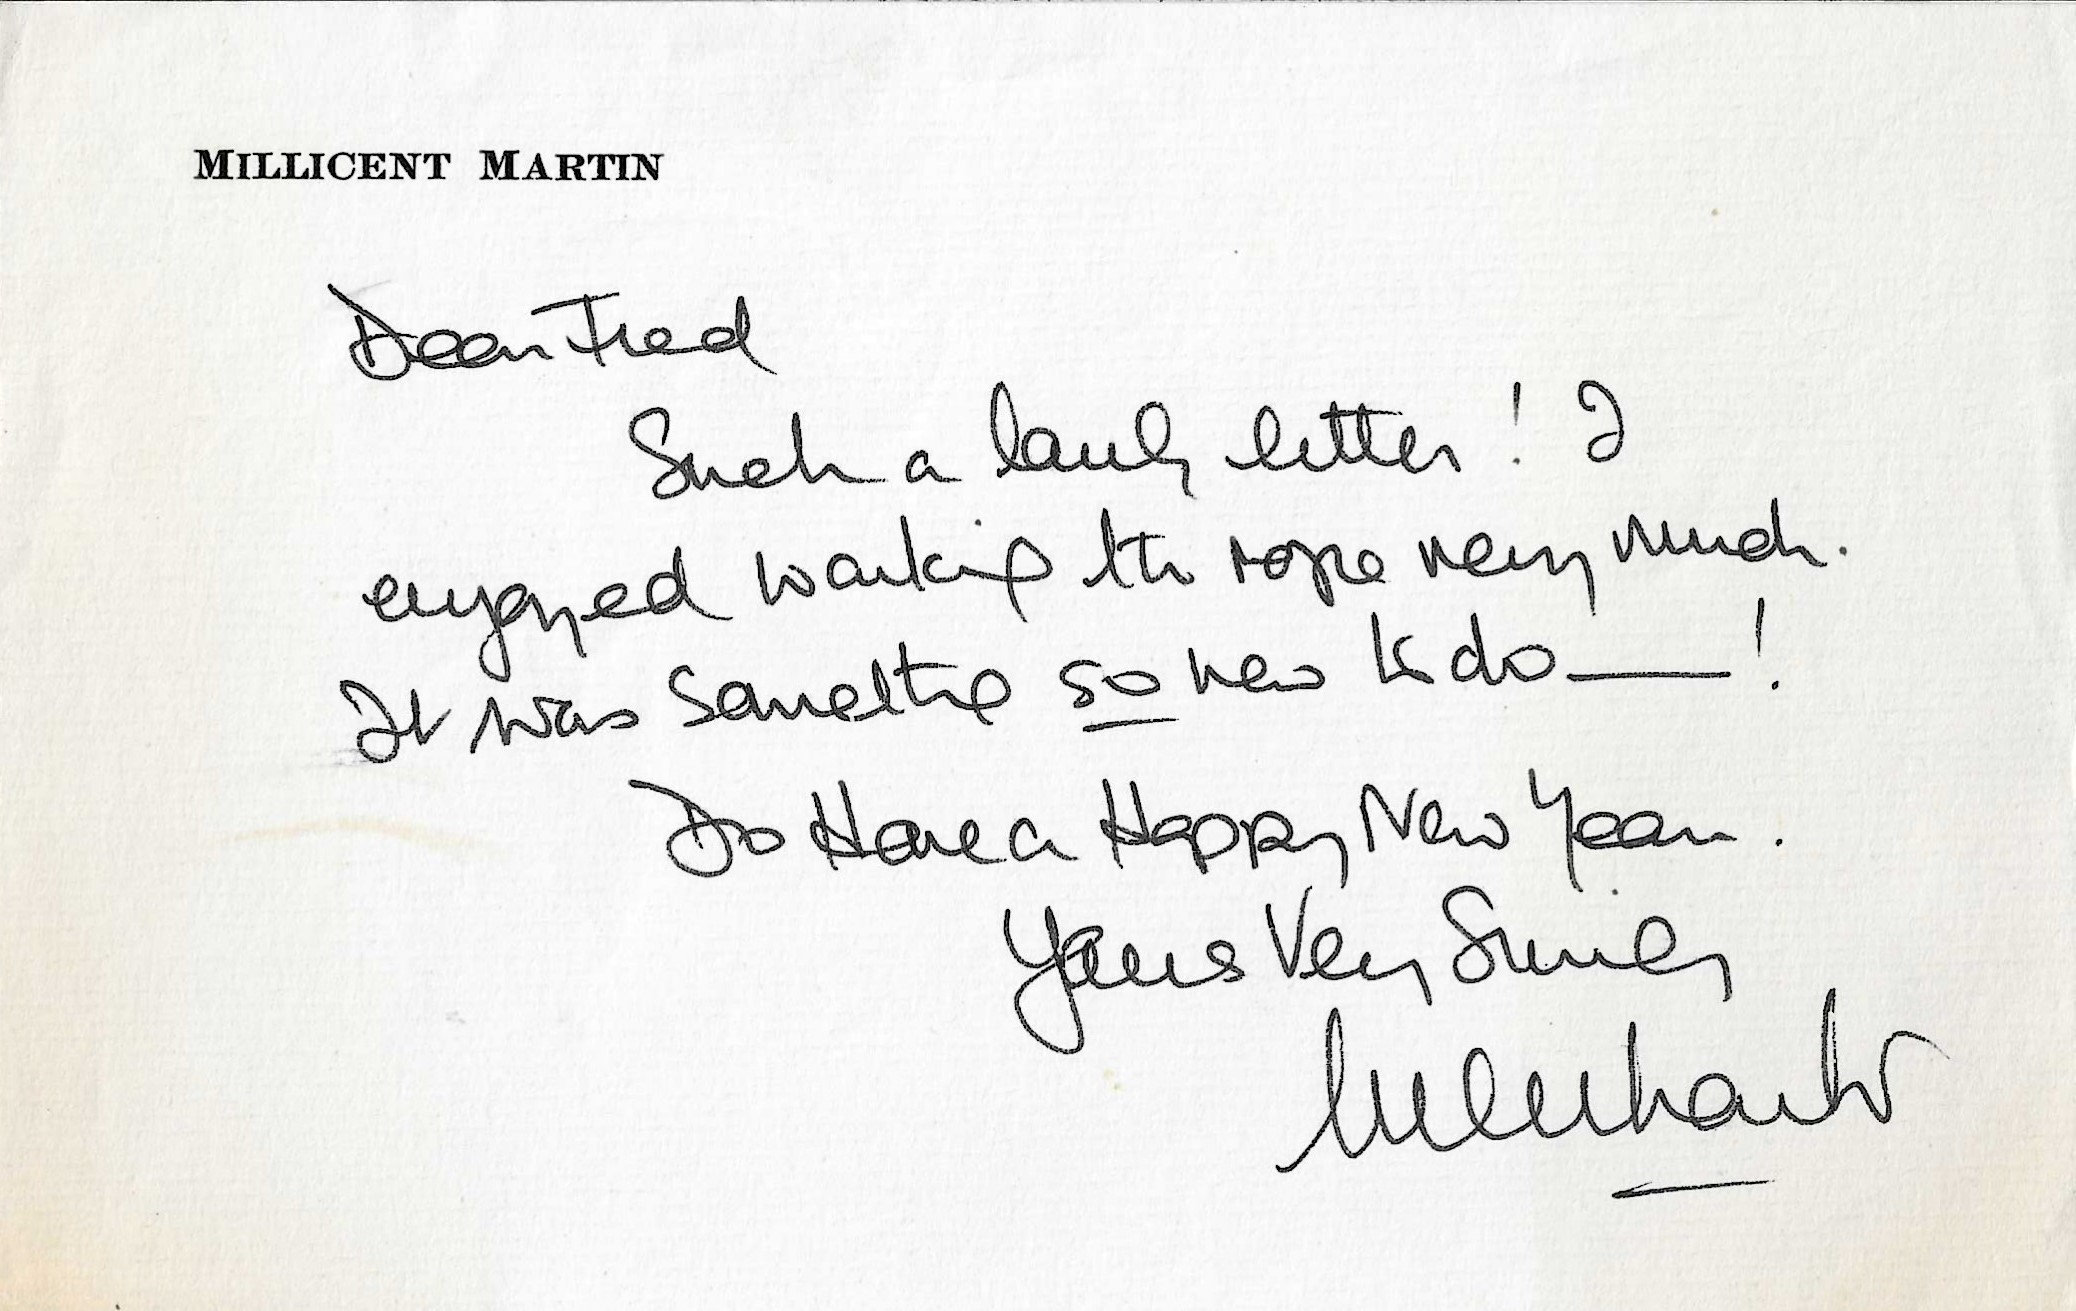 MILLICENT MARTIN
Dear Fred
Such a lovely letter! I
enjoyed working the rope very much.
It was something so new to do—!
Do Have a Happy New Year.
Yours Very Sincerely
Millicent Martin